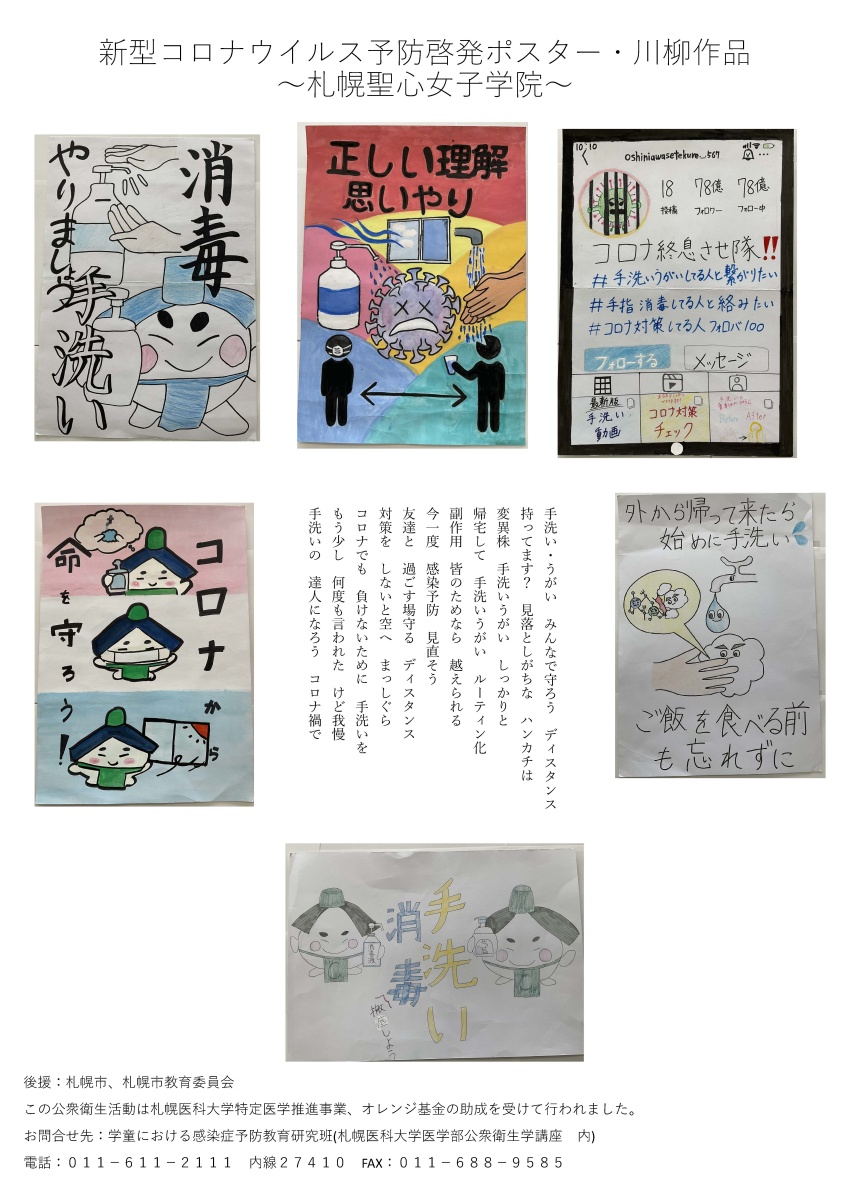 新型コロナウイルス予防啓発ポスター・川柳作品
～札幌聖心女子学院～
消毒
やりましょう
手洗い
正しい理解
思いやり
10:10
oshiniawasetekure_567
18
78億
78億
投稿
フォロワー
フォロー中
コロナ終息させ隊!!
#手洗いうがいしてる人と繋がりたい
#手指消毒してる人と絡みたい
#コロナ対策してる人フォロバ100
フォローする
メッセージ
最新版
手洗い
動画
コロナ対策
チェック
Before After
コロナ
から
命を守ろう!
手洗い・うがい　みんなで守ろう　ディスタンス
持ってます？　見落としがちな　ハンカチは
変異株　手洗いうがい　しっかりと
帰宅して　手洗いうがい　ルーティン化
副作用　皆のためなら　越えられる
今一度　感染予防　見直そう
友達と　過ごす場守る　ディスタンス
対策を　しないと空へ　まっしぐら
コロナでも　負けないために　手洗いを
もう少し　何度も言われた　けど我慢
手洗いの　達人になろう　コロナ禍で
外から帰って来たら
始めに手洗い
ご飯を食べる前
も忘れずに
手洗い
消毒
徹底しよう
消毒液
後援：札幌市、札幌市教育委員会
この公衆衛生活動は札幌医科大学特定医学推進事業、オレンジ基金の助成を受けて行われました。
お問合せ先：学童における感染症予防教育研究班(札幌医科大学医学部公衆衛生学講座　内)
電話：０１１－６１１－２１１１　内線２７４１０　FAX：０１１－６８８－９５８５